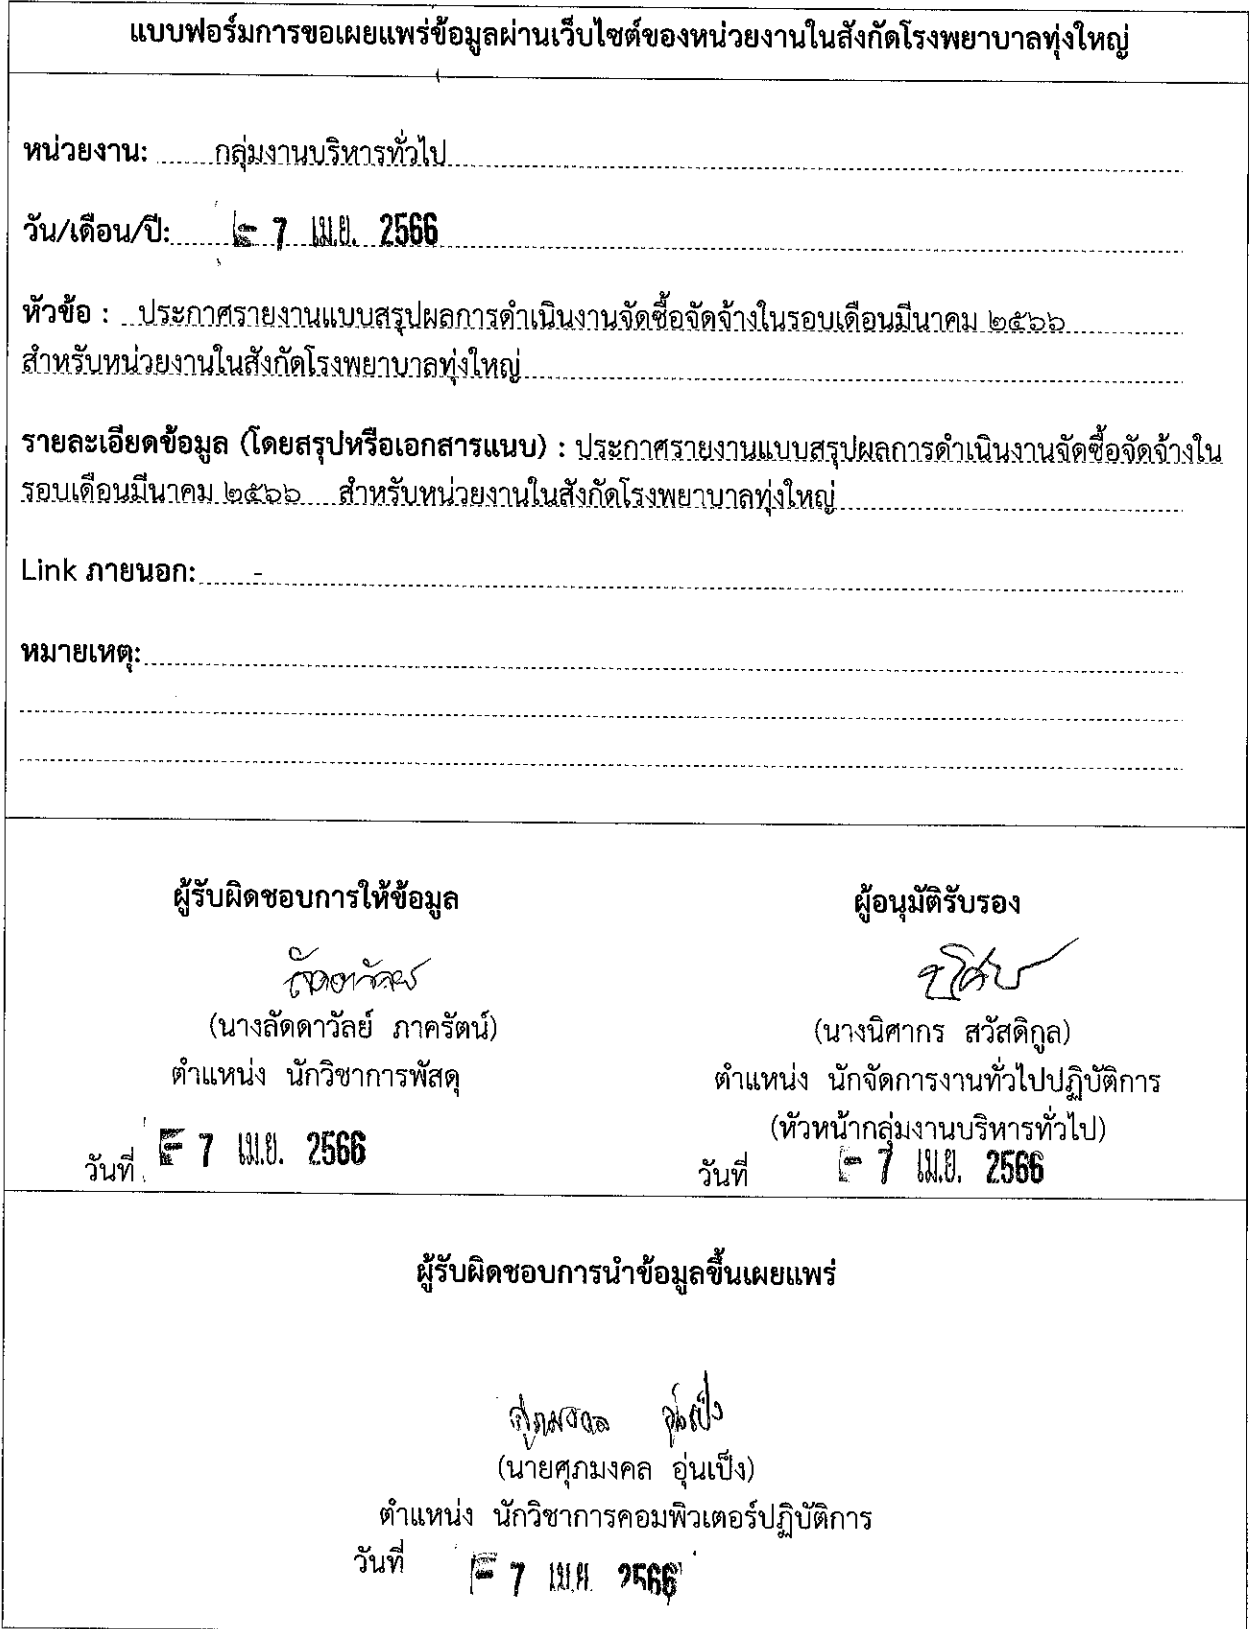 แบบฟอร์มการขอเผยแพร่ข้อมูลผ่านเว็บไซต์ของหน่วยงานในสังกัดโรงพยาบาลทุ่งใหญ่
หน่วยงาน: กลุ่มงานบริหารทั่วไป
วัน/เดือน/ปี: - 7 เม.ย. 2566
หัวข้อ : ประกาศรายงานแบบสรุปผลการดำเนินงานจัดซื้อจัดจ้างในรอบเดือนมีนาคม ๒๕๖๖
สำหรับหน่วยงานในสังกัดโรงพยาบาลทุ่งใหญ่
รายละเอียดข้อมูล (โดยสรุปหรือเอกสารแนบ) : ประกาศรายงานแบบสรุปผลการดำเนินงานจัดซื้อจัดจ้างใน
รอบเดือนมีนาคม ๒๕๖๖ สำหรับหน่วยงานในสังกัดโรงพยาบาลทุ่งใหญ่
Link ภายนอก: -
หมายเหตุ:
ผู้รับผิดชอบการให้ข้อมูล
ลัดดาวัลย์
(นางลัดดาวัลย์ ภาครัตน์)
ตำแหน่ง นักวิชาการพัสดุ
วันที่ - 7 เม.ย. 2566
ผู้อนุมัติรับรอง
(นางนิศากร สวัสดิกูล)
ตำแหน่ง นักจัดการงานทั่วไปปฏิบัติการ
(หัวหน้ากลุ่มงานบริหารทั่วไป)
วันที่ - 7 เม.ย. 2566
ผู้รับผิดชอบการนำข้อมูลขึ้นเผยแพร่
ศุภมงคล อุ่นเป็ง
(นายศุภมงคล อุ่นเป็ง)
ตำแหน่ง นักวิชาการคอมพิวเตอร์ปฏิบัติการ
วันที่ - 7 เม.ย. 2566